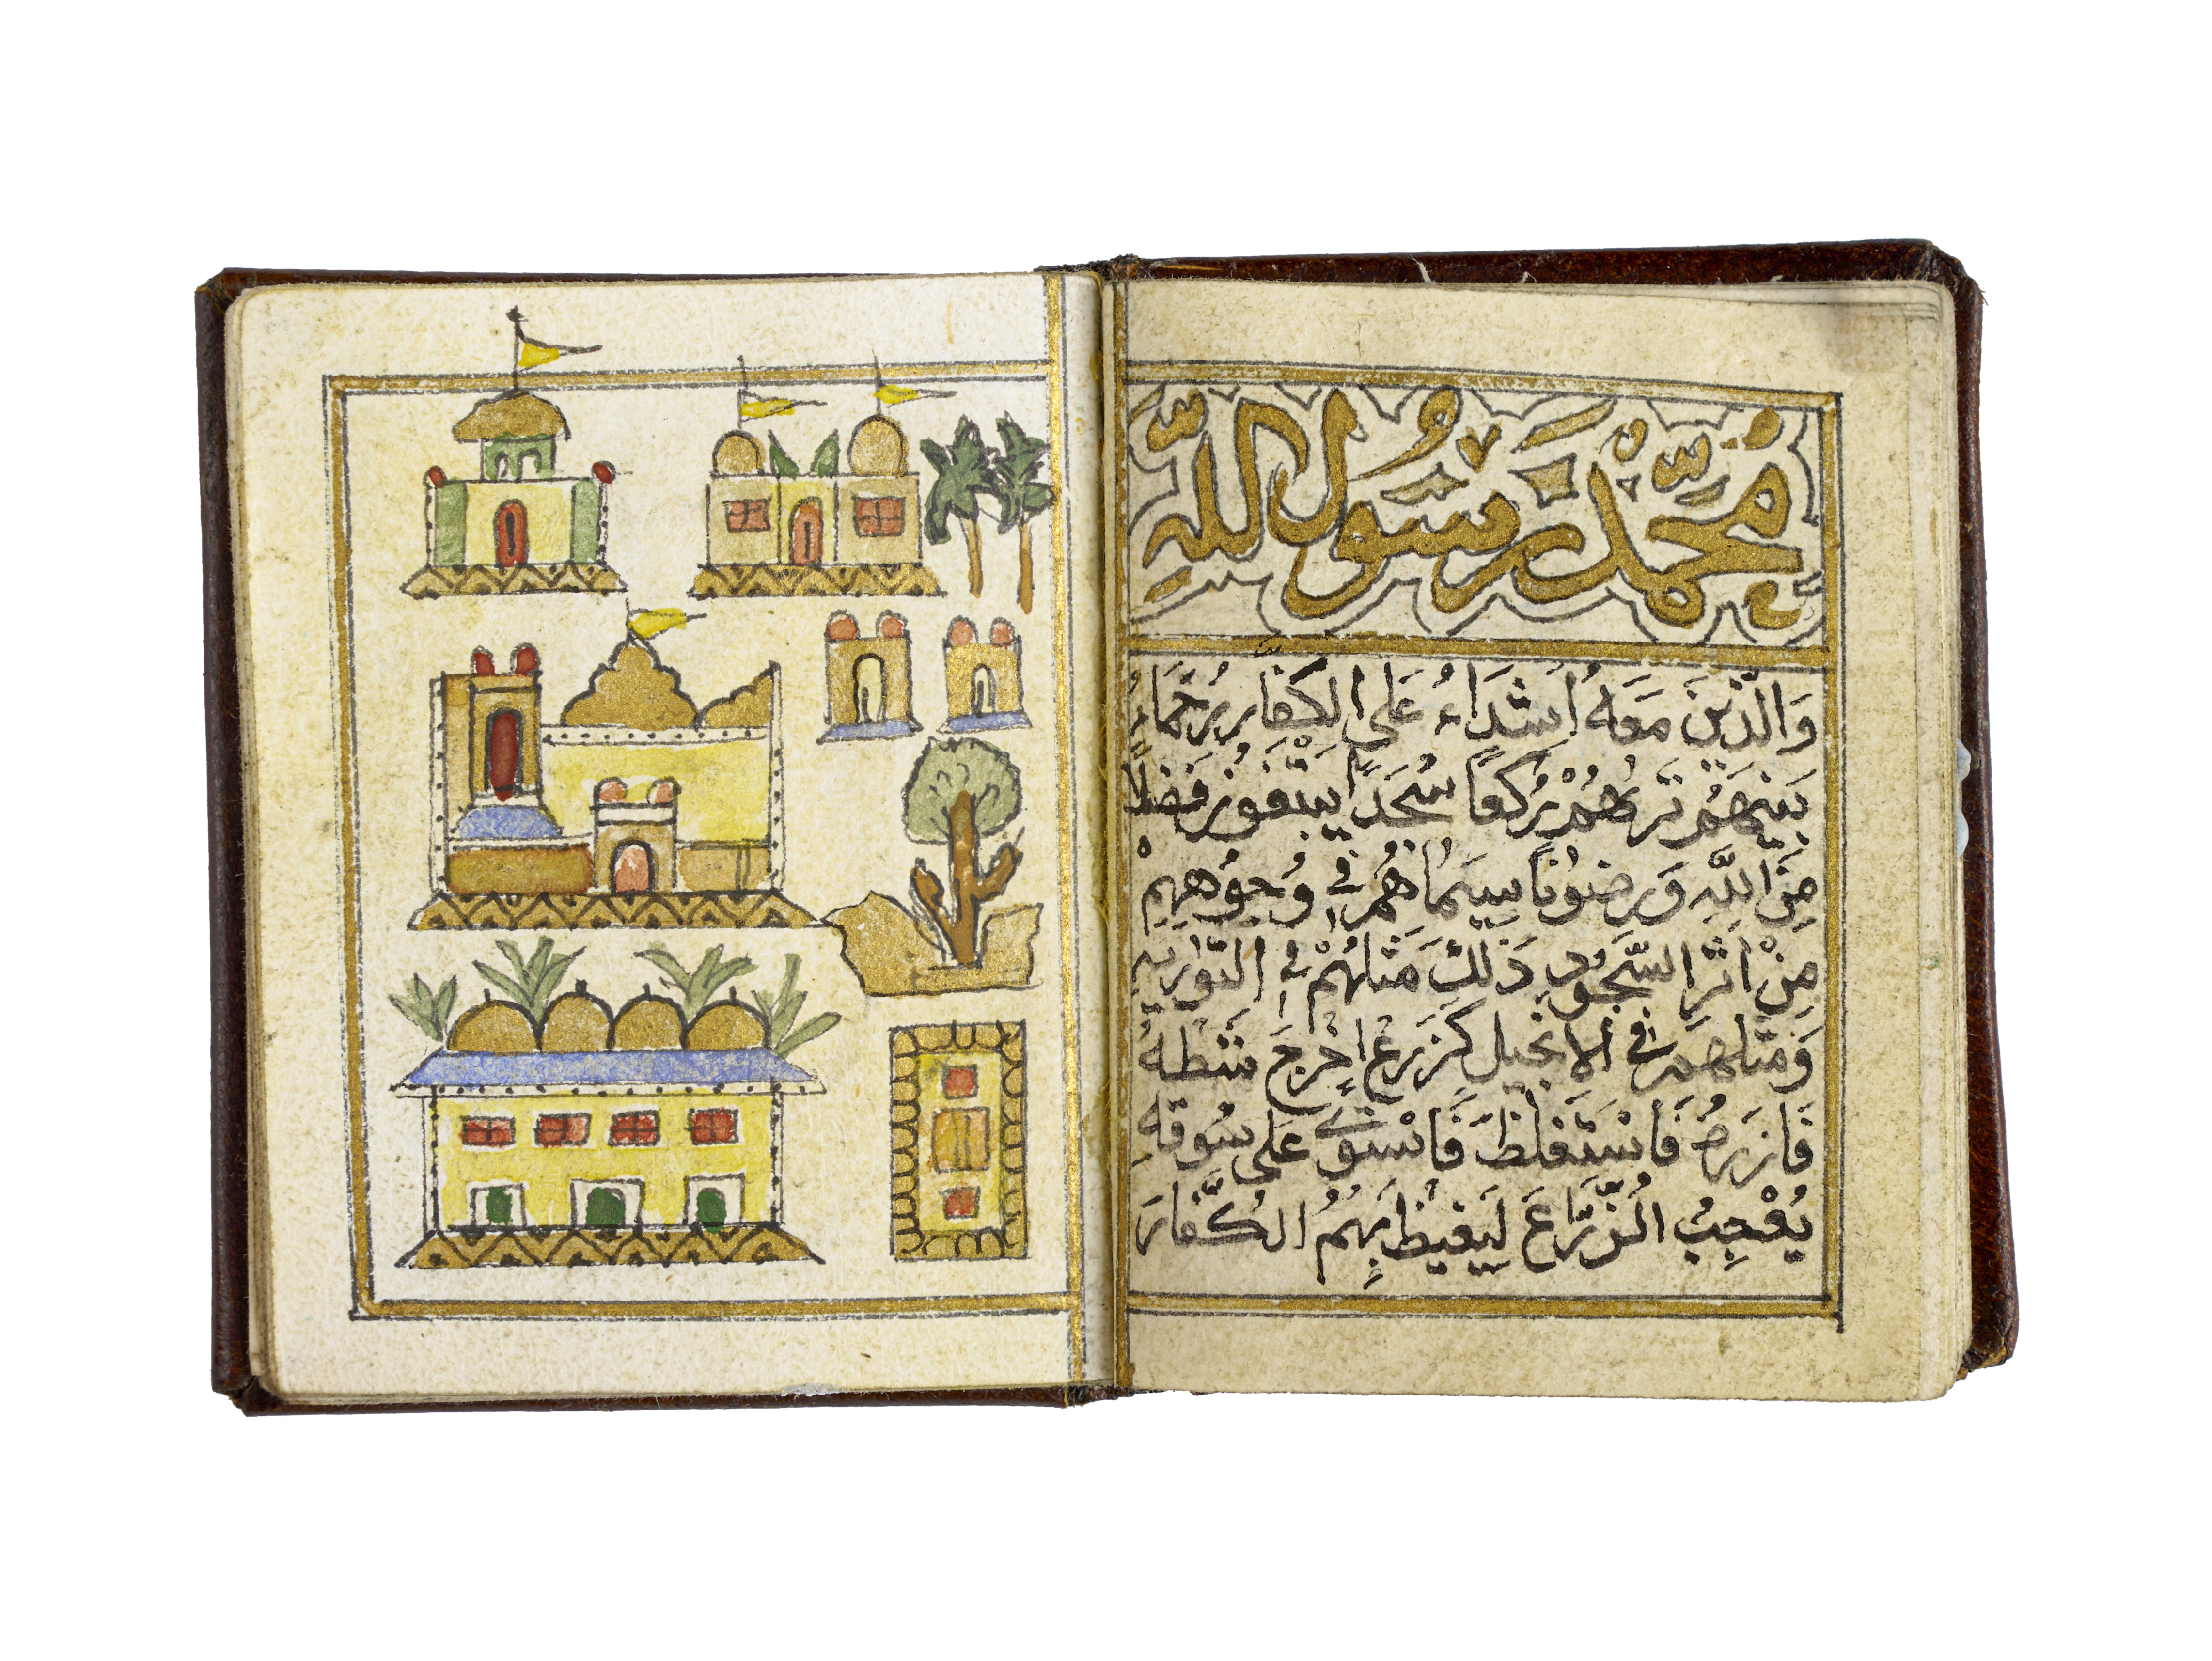 مُحَمَّدٌ رَسُولُ اللَّهِ
وَالَّذِينَ مَعَهُ أَشِدَّاءُ عَلَى الكُفَّارِ رُحَمَاءُ
بَيْنَهُمْ تَرَىٰهُمْ رُكَّعًا سُجَّدًا يَبْتَغُونَ فَضْلًا
مِنَ اللَّهِ وَرِضْوَانًا سِيمَاهُمْ فِي وُجُوهِهِمْ
مِنْ اَثَرِ السُّجُودِ ذَلِكَ مَثَلُهُمْ فِي التَّوْرٰيةِ
وَمَثَلُهُمْ فِي الْاِنْجِيلِ كَزَرْعٍ اَخْرَجَ شَطْئَهُ
فَازَرَهُ فَاسْتَغْلَظَ فَاسْتَوَى عَلَى سُوقِهِ
يُعْجِبُ الزُّرَّاعَ لِيَغِيظَ بِهِمُ الكُفَّارَ